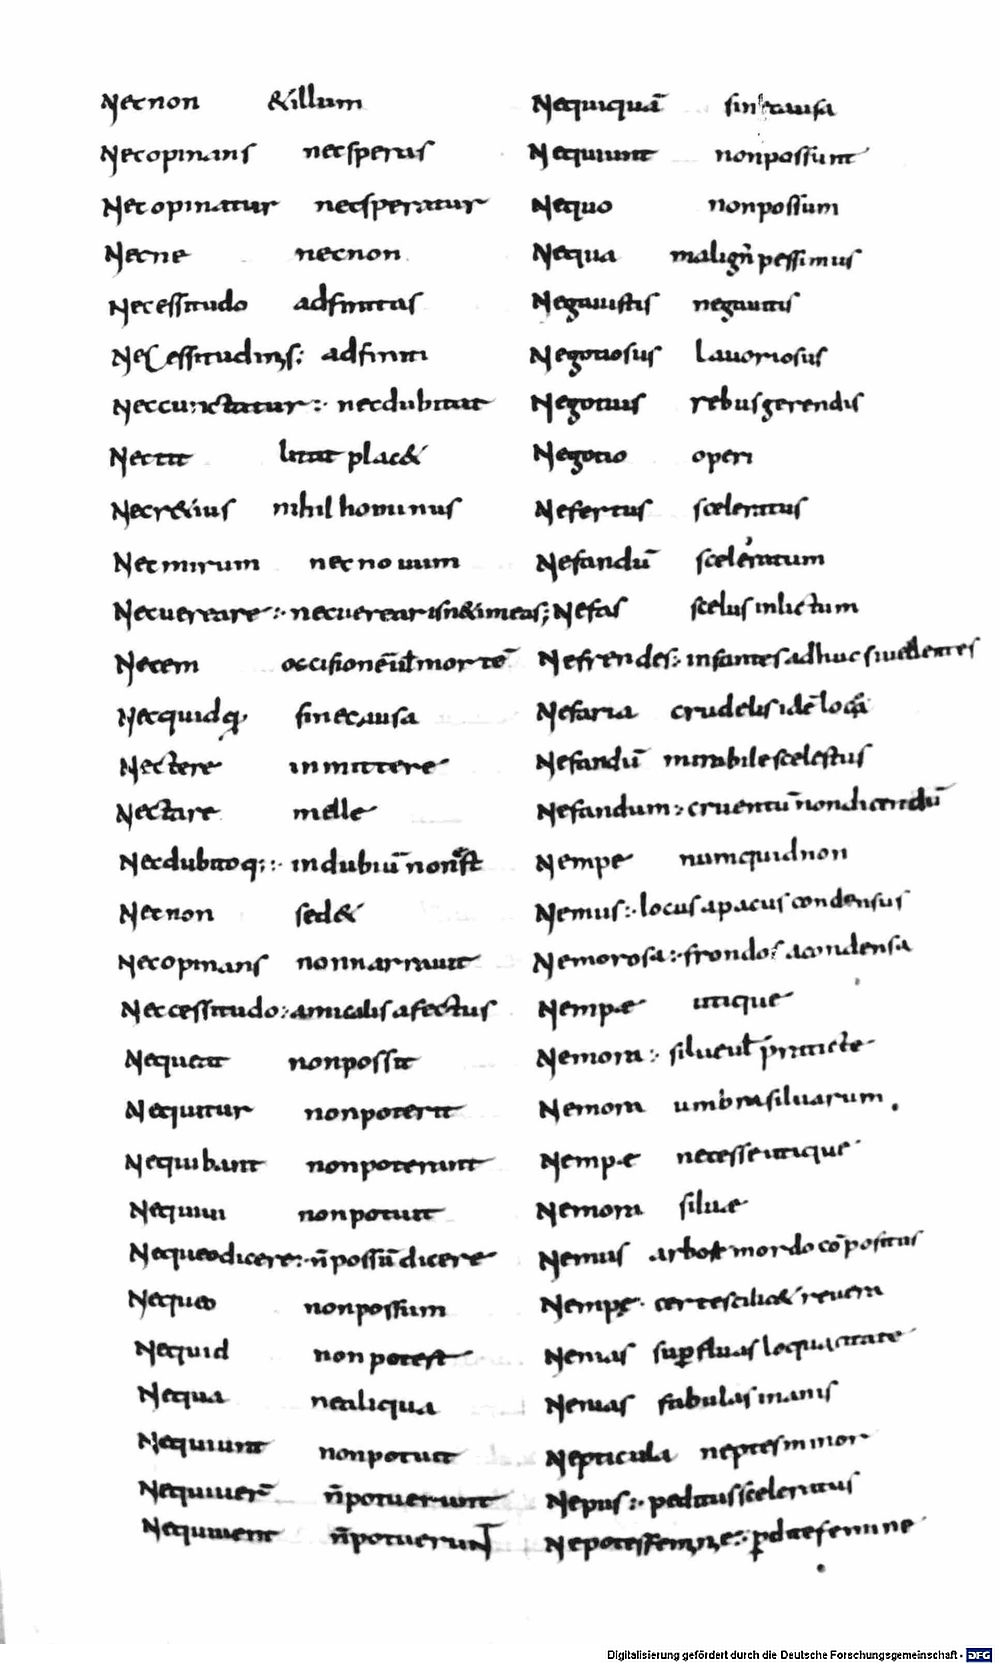 Necnon &illum
Necopinans necsperans
Necopinatur necsperatur
Necne necnon
Necessitudo adfinitas
Necessitudinis: adfiniti
Neccunctatur:· necdubitat
Nectit plac&
Necr&ius nihil hominus
Necmirum necnouum
Necuereare:·
Necem occisionē mortē
Necquidq; sinecausa
Nectere inmittere
Nectare melle
Necdubitoq;:· indubiū nonest
Necnon sed&
Necopinans nonnarrauit
Neccessitudo:· amicalis afectus
Nequeat nonpossit
Nequitur nonpoterit
Nequibant nonpoterunt
Nequiui nonpotuit
Nequeodicere:· n̄possū dicere
Nequeo nonpossum
Nequid nonpotest
Nequa nealiqua
Nequiunt nonpotuit
Nequiuer̄ n̄potuerunt
Nequiuent n̄potuerunt
Nequiquā sinecausa
Nequiunt nonpossunt
Nequo nonpossum
Nequa malign' pessimus
Negauistis negauitis
Negotiosus lauoriosus
Negotiis rebusgerendis
Negotio operi
Nefertus sceleratus
Nefandū sceleratum
Nefas scelus inlictum
Nefrendes:· infantes adhuc
Nefaria crudelis idē
Nefandū mirabile scelestus
Nefandum:· cruentū nondicendū
Nempe numquidnon
Nemus:· locus apacus condensus
Nemorosa:· frondosa condensa
Nempe utique
Nemora:·
Nemora umbrasiluarum
Nempe necesse utique
Nemora siluae
Nemus ordo cōpositus
Nempe certe scilic& reuera
Nenias sup̄fluas loquacitate
Nenias fabulas inanis
Nepticula neptes minor
Nepus:· peditus sceleratus
Nepotes femine:· p̄dite femine
Digitalisierung gefördert durch die Deutsche Forschungsgemeinschaft - DFG